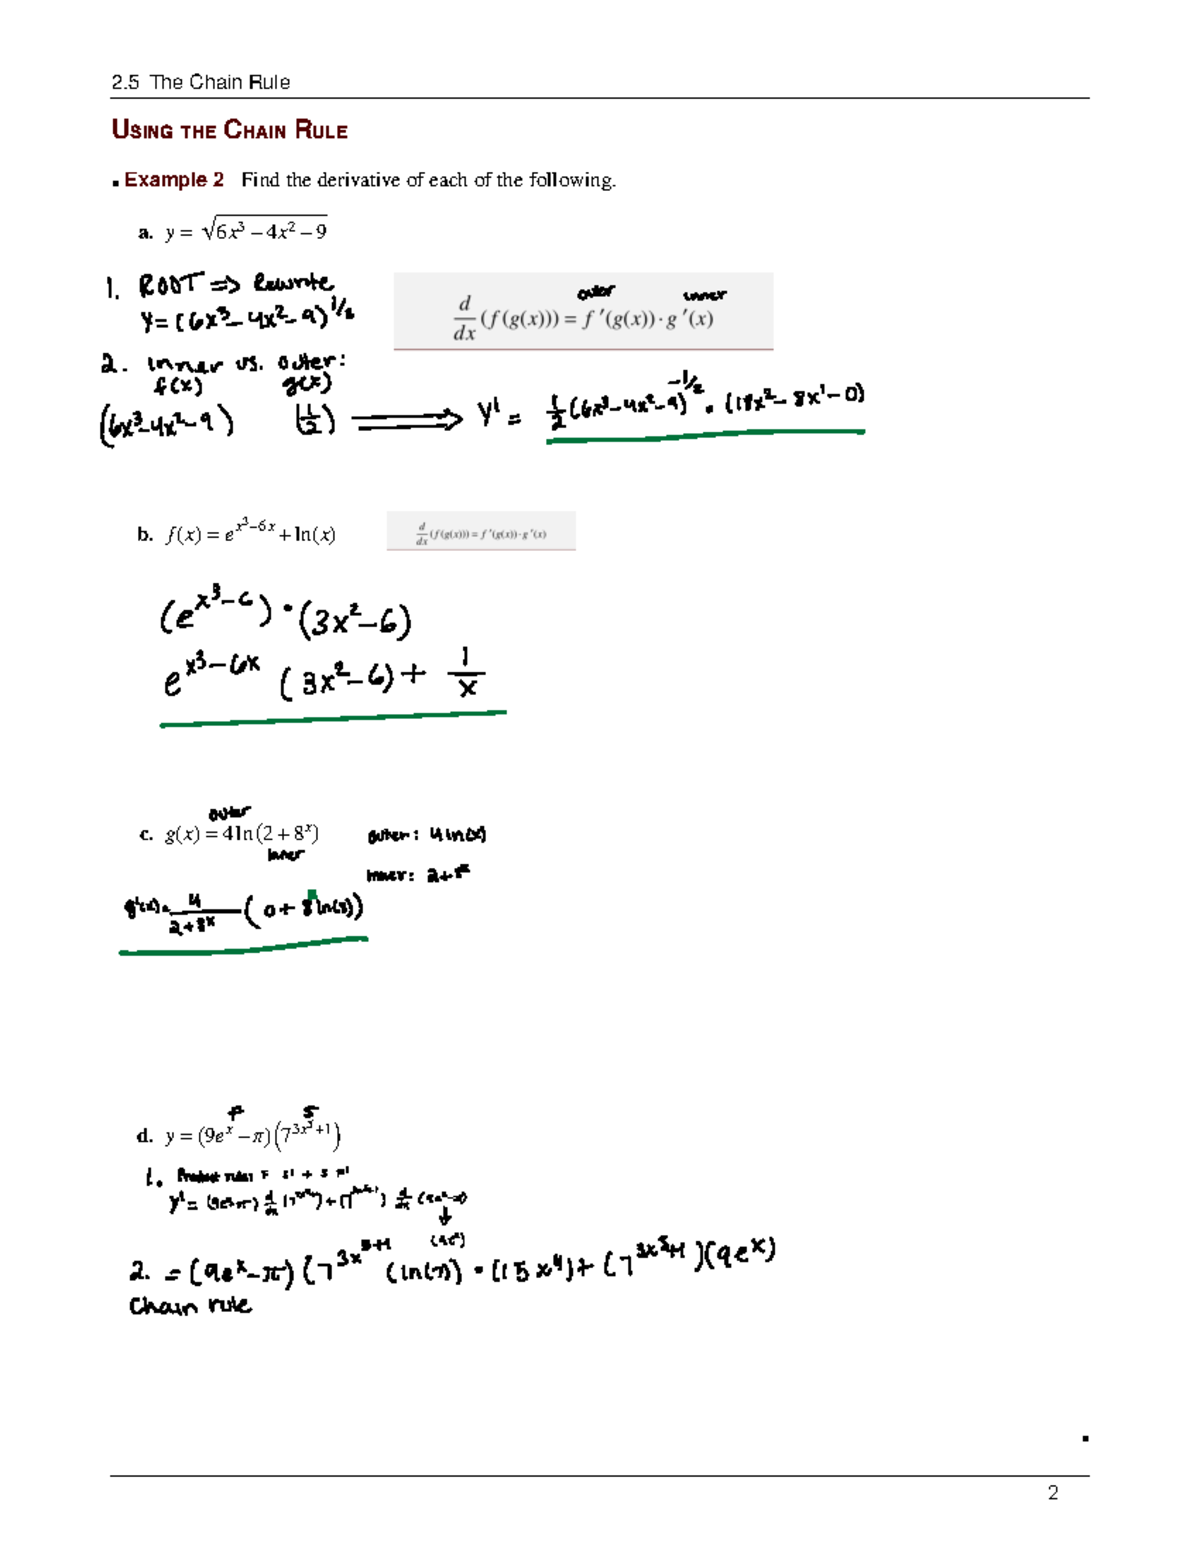 2.5 The Chain Rule
USING THE CHAIN RULE
▪ Example 2 Find the derivative of each of the following.
a. y = √(6x³ – 4x² – 9)
1. ROOT => Rewrite
y = (6x³ – 4x² – 9)^1/2
outer inner
d/dx (f(g(x))) = f ′(g(x)) · g ′(x)
2. inner vs. outer:
f(x) g(x)
(6x³ – 4x² – 9) (1/2) ⟹ y' = 1/2 (6x³ – 4x² – 9)^-1/2 • (18x² – 8x¹ – 0)
b. f(x) = e^(x³–6x) + ln(x)
d/dx (f(g(x))) = f ′(g(x)) · g ′(x)
(e^(x³–6)) • (3x² – 6)
e^(x³–6x) (3x² – 6) + 1/x
outer
c. g(x) = 4 ln(2 + 8^x)
inner
outer: 4ln(x)
inner: 2+
g'(x) = 4/(2+8^x) (0 + 8 ln(8))
F S
d. y = (9e^x – π)(7^(3x⁵+1))
1. Product rule: F S' + S F'
y' = (9e^x–π) d/dx (7) + (7) d/dx
↓
(9e^x)
2. = (9e^x – π)(7^(3x^5+1) (ln(7)) • (15x⁴) + (7^(3x⁵+1))(9e^x)
Chain rule
2